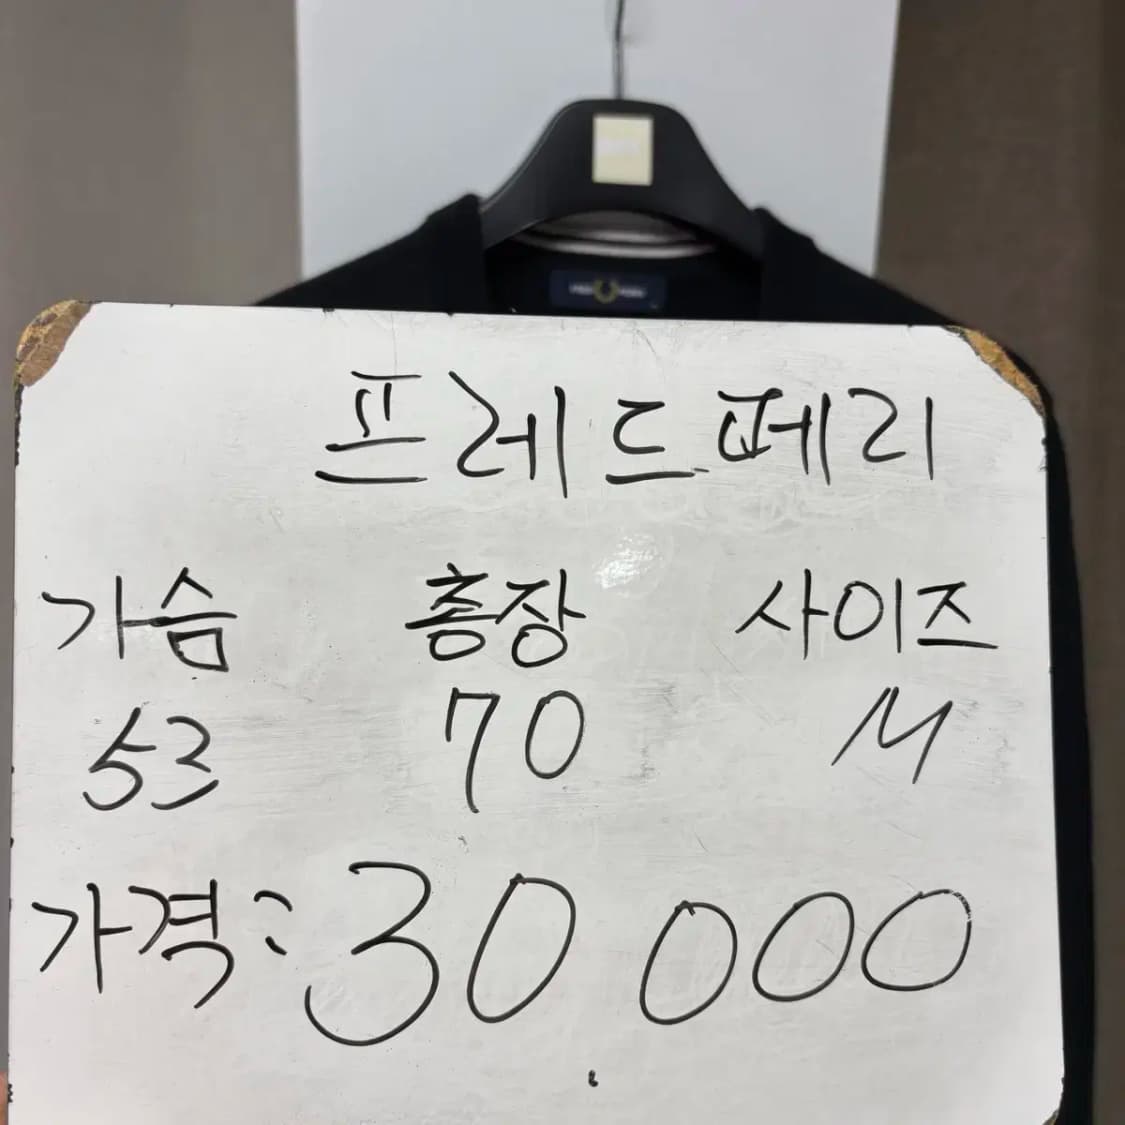 프레드페리
가슴 총장 사이즈
53 70 M
가격: 30,000